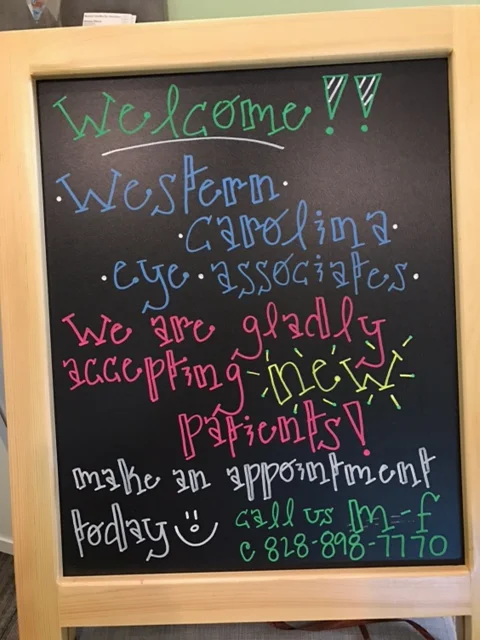 Welcome!!
·Western·
·Carolina·
·eye·associates·
We are gladly
accepting new
patients!
make an appointment
today call us m-f
@ 828-898-7770